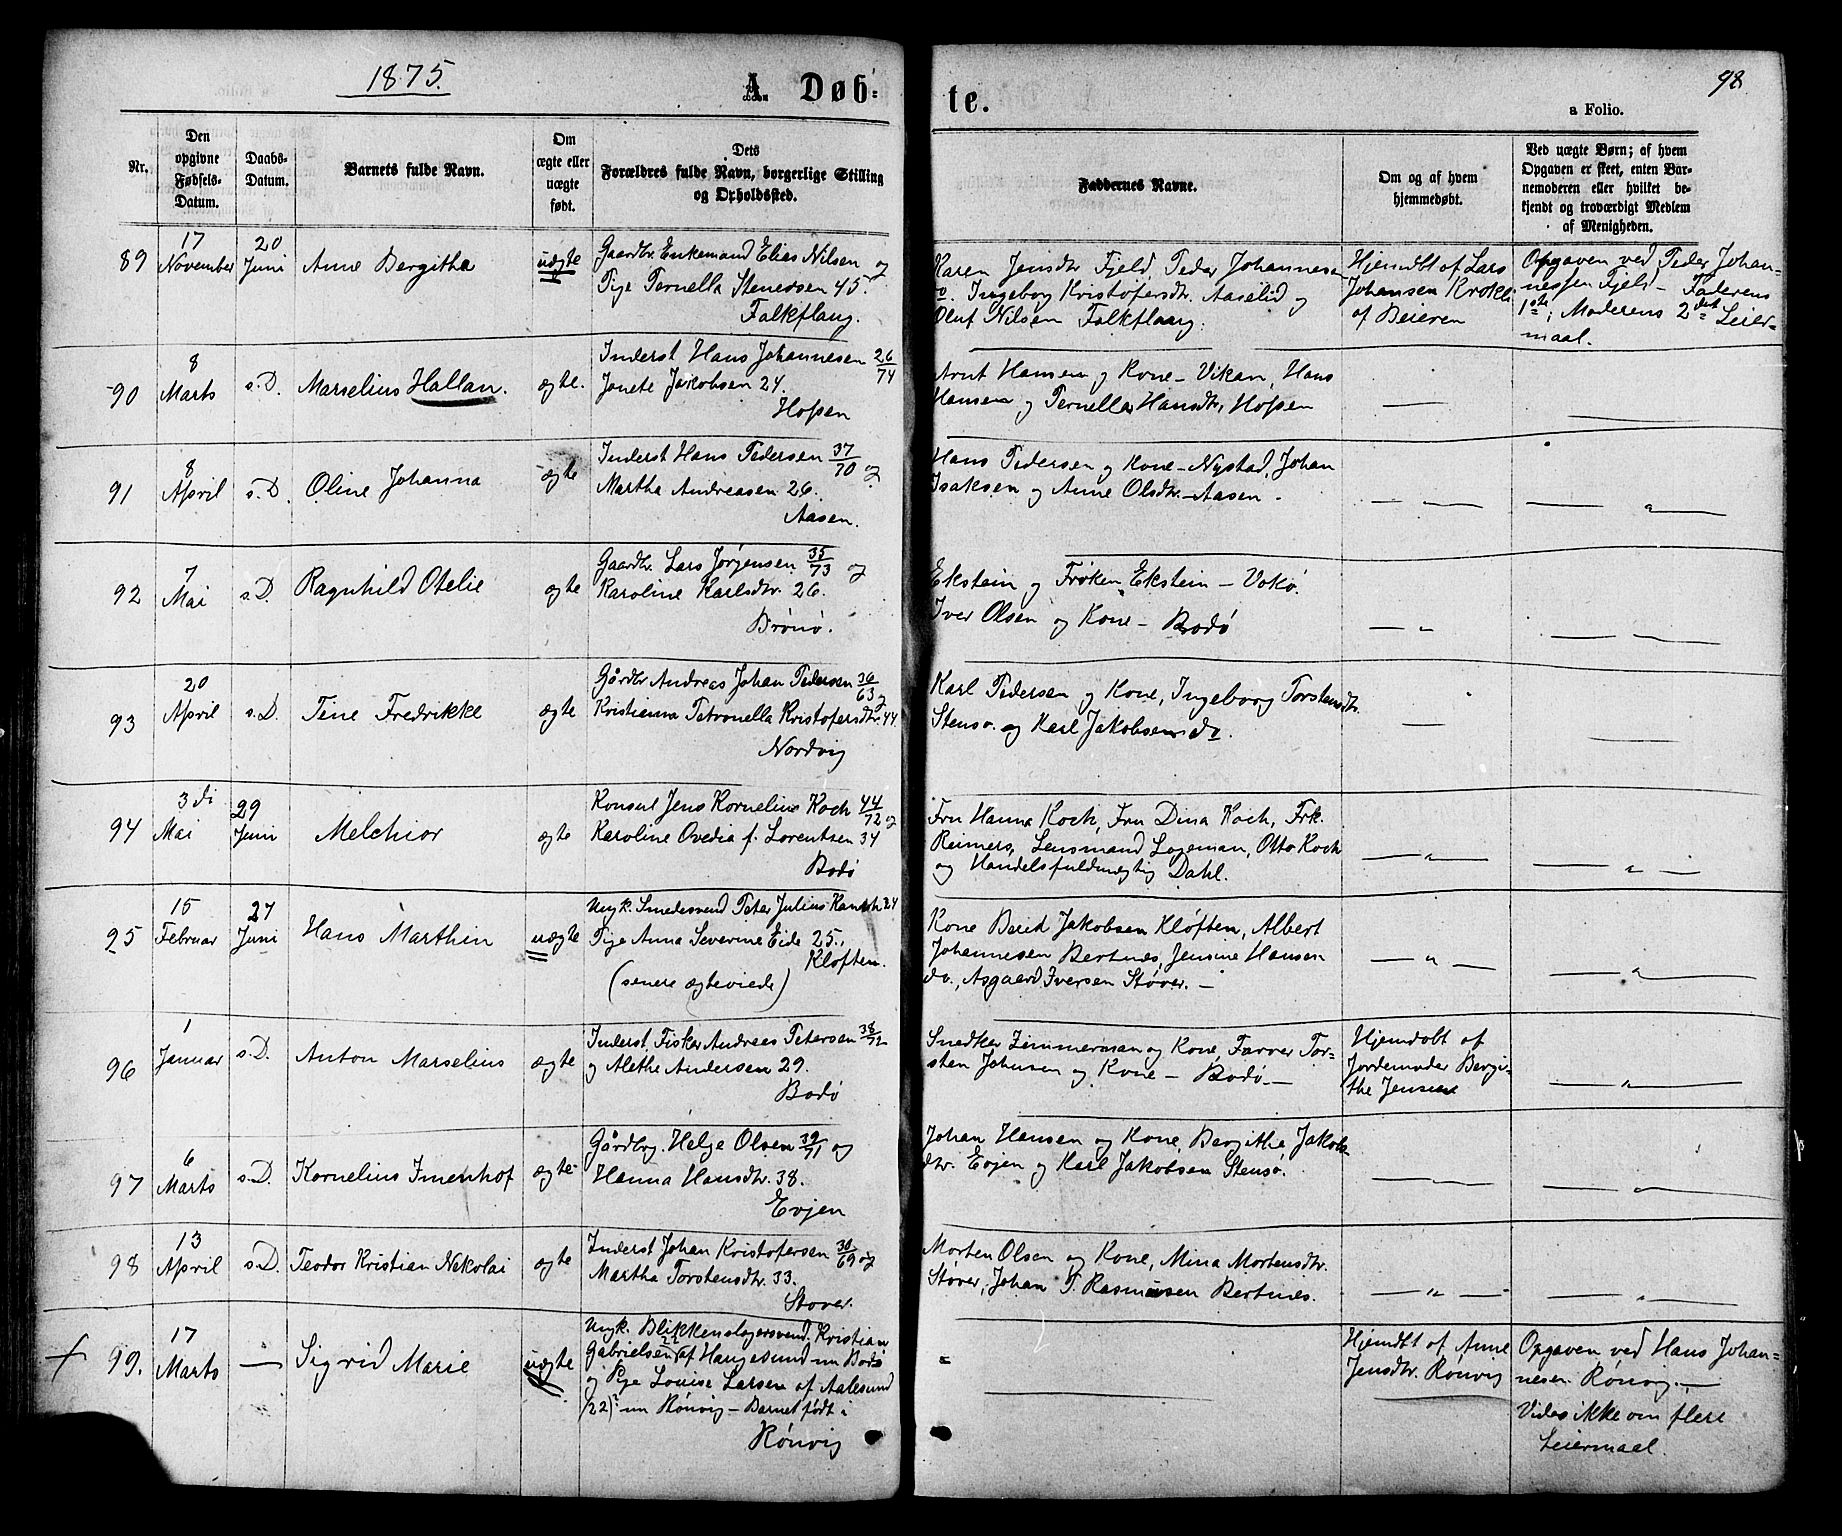 1875.
A. Døb-
te.
98
a Folio.
Nr.
Den
opgivne
Fødsels-
Datum.
Daabs-
Datum.
Barnets fulde Navn.
Om
ægte eller
uægte
født.
Dets
Forældres fulde Navn, borgerlige Stilling
og Opholdssted.
Faddernes Navne.
Om og af hvem
hjemmedøbt.
Ved uægte Børn; af hvem
Opgaven er skeet, enten Bar-
nemoderen eller hvilket be-
kjendt og troværdigt Medlem
af Menigheden.
89
17
November
20
Juni
Anne Bergitha
uægte
Gaardbr. Enkemand Elias Nilsen og
Pige Pernella Stenersen 45.
Falkflaug.
Karen Jensdtr Fjeld, Peder Johannesen
do. Ingeborg Kristofersdtr. Aaselid og
Oluf Nilsen Falkflaug.
Hjemdbt af Lars
Johansen Krokli
af Beieren
Opgaven ved Peder Johan=
nessen Fjeld - Faderens
1ste, Moderens 2det Leier=
maal.
90
8
Marts
s.D.
Marselius Hallan.
ægte.
Inderst Hans Johannesen 26/74
Janete Jakobsen 24.
Hopen
Arnt Hansen og Kone - Vikan, Hans
Hansen og Pernella Hansdtr, Hopen
91
8
April
s.D.
Oline Johanna
ægte
Inderst Hans Pedersen 37/70 og
Martha Andreasen 26.
Aasen.
Hans Pedersen og Kone - Nystad, Johan
Isaksen og Anne Olsdtr. - Aasen -
92
7
Mai
s.D.
Ragnhild Otelie
ægte
Gaardbr. Lars Jørgensen 35/73 og
Karoline Karlsdtr. 26.
Brönö.
Ekstein og Frøken Ekstein - Vokö.
Iver Olsen og Kone - Bodö
93
20
April
s.D.
Tine Fredrikke
ægte
Gårdbr Andreas Johan Pedersen 36/63 og
Kristianna Petronella Kristofersdtr. 44
Nordvig
Karl Pedersen og Kone, Ingeborg Torstensdtr.
Stensö. og Karl Jakobsen do.
94
3di
Mai
29
Juni
Melchior
ægte
Konsul Jens Kornelius Koch 44/72 og
Karoline Ovedia f. Lorentsen 34
Bodö
Fru Hanna Koch, Fru Dina Koch, Frk.
Reimers, Lensmand Logeman, Otto Koch
og Handelsfuldmægtig Dahl.
95
15
Februar
27
Juni
Hans Marthin
uægte
Ungk. Smedesvend Peter Julius 24
Pige Anna Severine Eide 25.
Klöften.
(senere ægteviede)
Kone Berit Jakobsen Klöften, Albert
Johannesen Bertnes, Jensine Hansen
do., Asgaard Iversen Støver. -
96
1
Januar
s.D.
Anton Marselius
ægte
Inderst Fisker Andreas Petersen 38/72
og Alethe Andersen 29.
Bodö
Snedker Zimmerman og Kone, Farver Tor=
sten Johnsen og Kone - Bodö -
Hjemdøbt af
Jordemoder Bergi-
the Jensen
97
6
Marts
s.D.
Kornelius Imenhof
ægte
Gårdbrg. Helge Olsen 39/71 og
Hanna Hansdtr. 38.
Evjen
Johan Hansen og Kone, Bergitha Jakobs-
dtr. Evjen og Karl Jakobsen Stensö.
98
13
April
s.D.
Teodor Kristian Nikolai
ægte
Inderst Johan Kristofersen 30/69 og
Martha Torstensdtr. 33.
Stover.
Morten Olsen og Kone, Mina Mortensdtr.
Støver, Johan P. Rasmussen Bertnes.
99.
17
Marts
Sigrid Marie
uægte
Ungk. Blikkenslagersvend Kristian
Gabrielsen 22 af Haugesund nu Bodö
og Pige Louise Larsen af Aalesund
(22) nu Rönvig - Barnet født i
Rönvig
Hjemdbt af Anne
Jensdtr. Rönvig
Opgaven ved Hans Johan=
nesen Rönvig. -
Vides ikke om flere
Leiermaal.